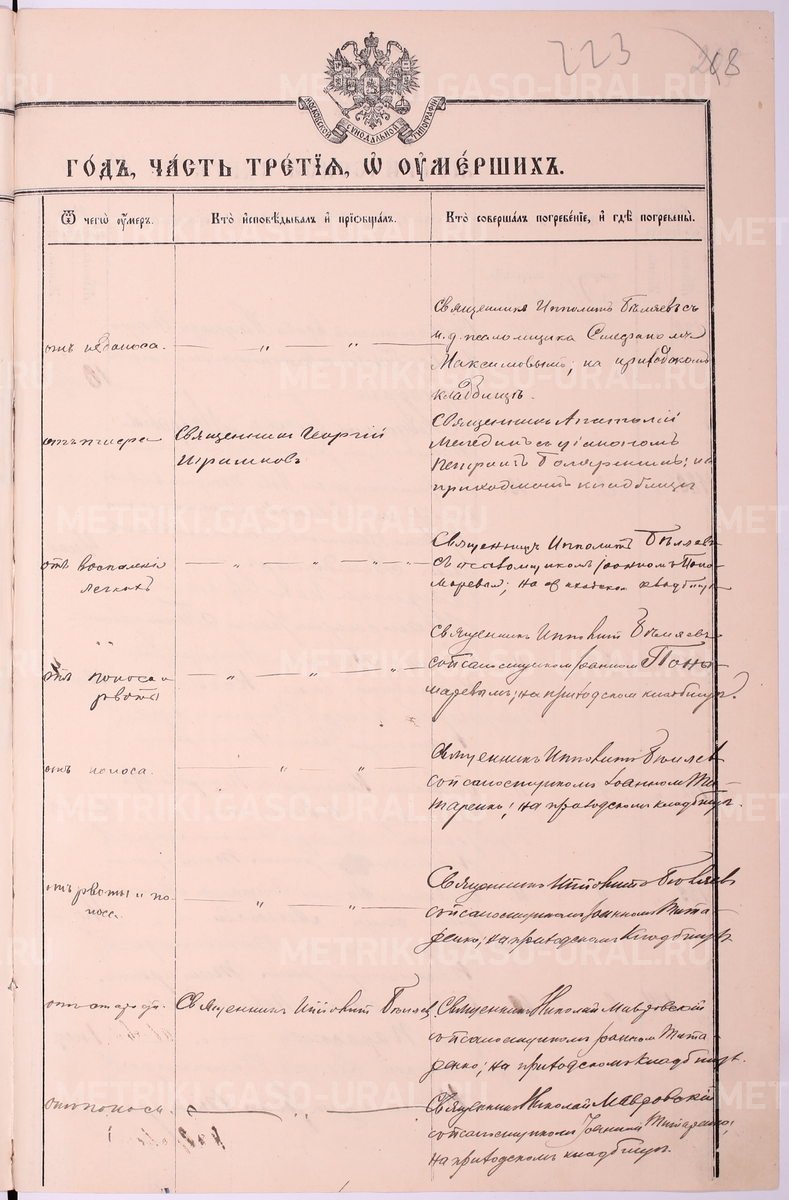 223
208
МОСКОВСКОЙ СУНОДАЛЬНОЙ ТИПОГРАФІИ
ГОДЪ, ЧАСТЬ ТРЕТІЯ, Ѡ ОУМЕРШИХЪ.
Ѿ чегѡ оумеръ.
Кто исповѣдывалъ и пріобщалъ.
Кто совершалъ погребеніе, и гдѣ погребены.
отъ поноса.
Священникъ Ипполитъ Бѣляевъ съ
и.д. псаломщика Стефаномъ
Максимовымъ; на приходскомъ
кладбищѣ.
Священникъ Георгій
Шрамковъ
Священникъ Анатолій
съ діакономъ
на
приходскомъ кладбищѣ
отъ воспаленія
легкихъ
Священникъ Ипполитъ Бѣляевъ
съ псаломщикомъ Іоанномъ Поно-
маревымъ; на приходскомъ кладбищѣ
отъ поноса и
рвоты
Священникъ Ипполитъ Бѣляевъ
со псаломщикомъ Іоанномъ Поно-
маревымъ; на приходскомъ кладбищѣ.
отъ поноса.
Священникъ Ипполитъ Бѣляевъ
со псаломщикомъ Іоанномъ Тит-
таренко; на приходскомъ кладбищѣ.
отъ рвоты и по-
носа.
Священникъ Ипполитъ Бѣляевъ
со псаломщикомъ Іоанномъ Тита-
ренко; на приходскомъ кладбищѣ
отъ старости.
Священникъ Ипполитъ Бѣляев
Священникъ Николай Мавровскій
со псаломщикомъ Іоанномъ Тита-
ренко; на приходскомъ кладбищѣ.
отъ поноса.
Священникъ Николай Мавровскій
со псаломщикомъ Іоанномъ Титаренко;
на приходскомъ кладбищѣ.
METRIKI.GASO-URAL.RU